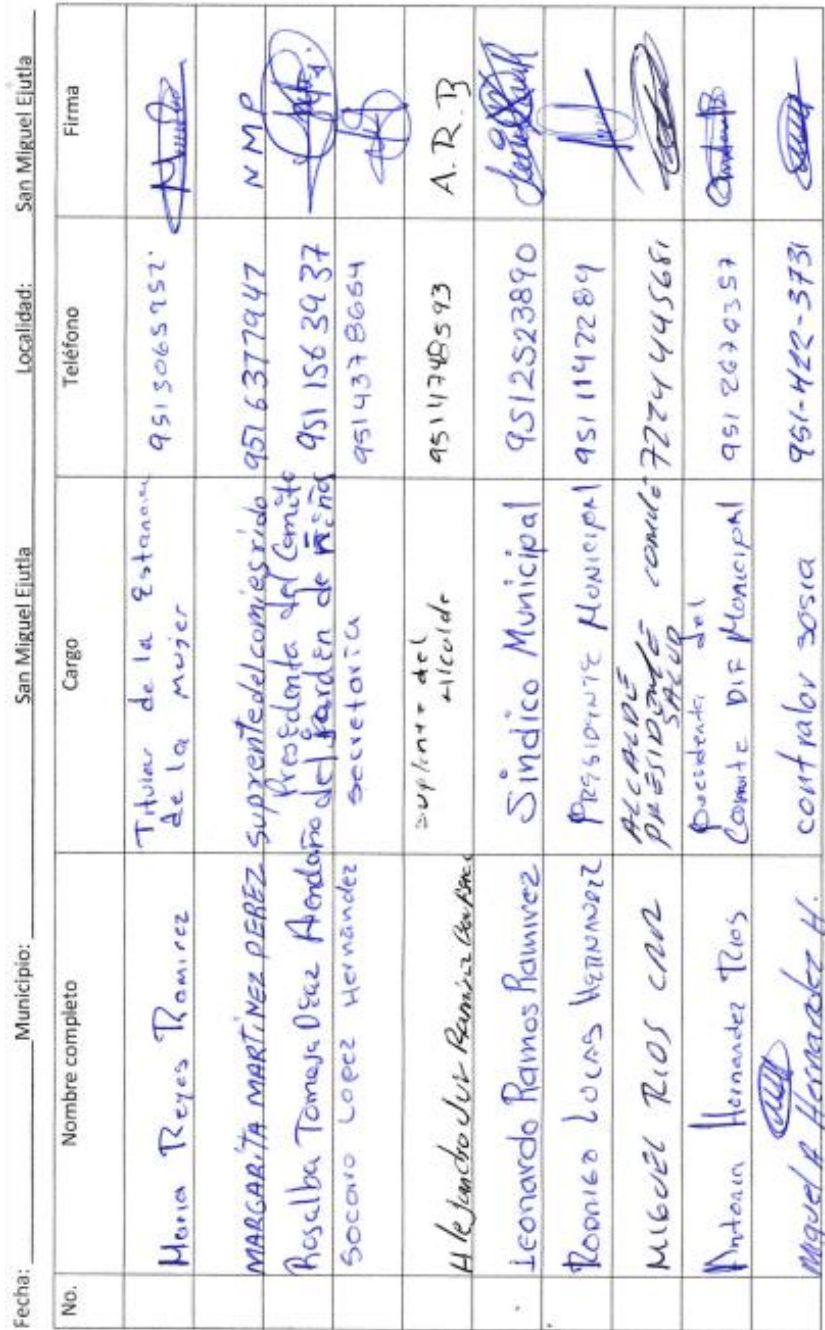 Fecha: Municipio: San Miguel Ejutla Localidad: San Miguel Ejutla
No. Nombre completo Cargo Teléfono Firma
Maria Reyes Ramirez Titular de la Estancia de la Mujer 9513065952
MARGARITA MARTINEZ PEREZ suprente del comiesrido 951 6377947 NMP
Rosalba Tomasa Díaz Avendaño Presedenta del Comite del Jardén de niños 951 156 3937
Socorro Lopez Hernández Secretaria 9514378664
Alejandro Ramirez suplente del Alcalde 9511748593 A.R.B
Leonardo Ramos Ramirez Sindico Municipal 9512523890
RODRIGO LUCAS HERNANDEZ PRESIDENTE MUNICIPAL 951 1142289
MIGUEL RIOS CRUZ ALCALDE PRESIDENTE comité SALUD 7224445681
Antonia Hernandez Rios Presidenta del Comite DIF Municipal 951 2670357
Miguel A Hernandez H. contralor sosia 951-422-3731